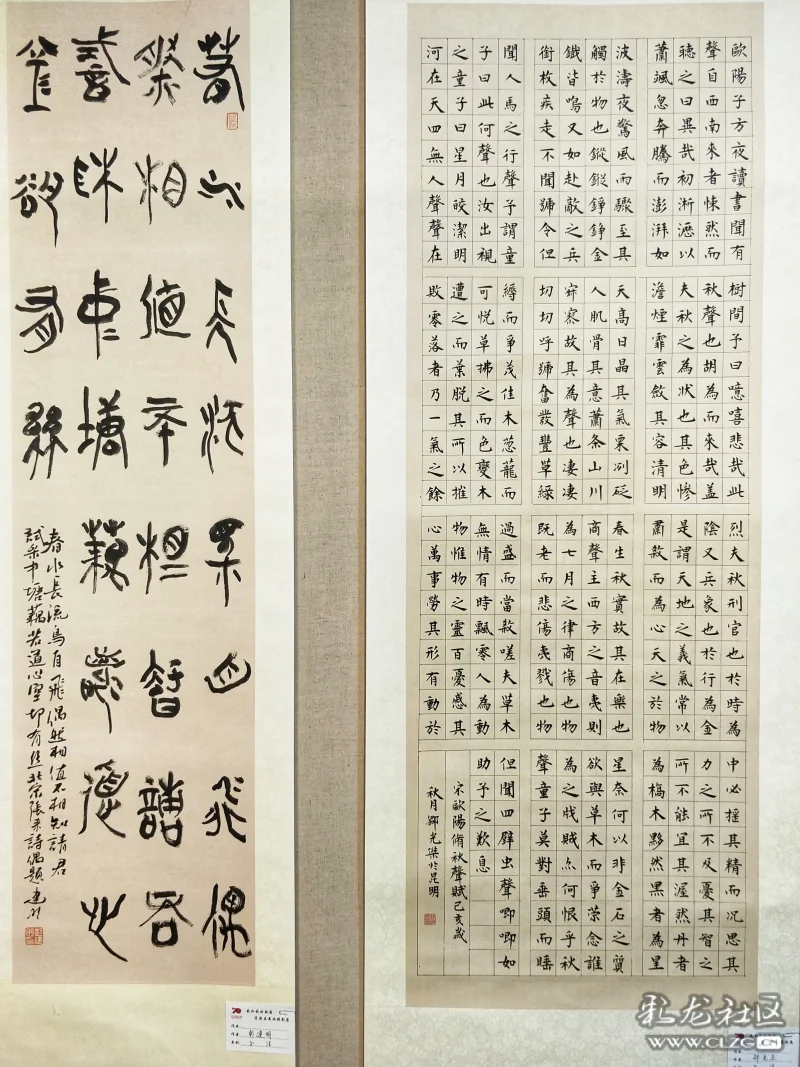 歐陽子方夜讀書聞有
聲自西南來者悚然而
聽之曰異哉初淅瀝以
蕭颯忽奔騰而澎湃如
波濤夜驚風而驟至其
觸於物也鏦鏦錚錚金
鐵皆鳴又如赴敵之兵
銜枚疾走不聞號令但
聞人馬之行聲予謂童
子曰此何聲也汝出視
之童子曰星月皎潔明
河在天四無人聲聲在
樹間予曰噫嘻悲哉此
秋聲也胡為而來哉盖
夫秋之為狀也其色慘
澹煙霏雲斂其容清明
天高日晶其氣栗冽砭
人肌骨其意蕭条山川
寂寥故其為聲也凄凄
切切呼號奮發豐草綠
縟而爭茂佳木蔥蘢而
可悅草拂之而色變木
遭之而葉脫其所以摧
敗零落者乃一氣之餘
烈夫秋刑官也於時為
陰又兵象也於行為金
是謂天地之義氣常以
肅殺而為心天之於物
春生秋實故其在樂也
商聲主西方之音夷則
為七月之律商傷也物
既老而悲傷夷戮也物
過盛而當殺嗟夫草木
無情有時飄零人為動
物惟物之靈百憂感其
心萬事勞其形有動於
中必摇其精而况思其
力之所不及憂其智之
所不能宜其渥然丹者
為槁木黟然黑者為星
星奈何以非金石之質
欲與草木而爭荣念誰
為之戕賊亦何恨乎秋
聲童子莫對垂頭而睡
但聞四壁虫聲唧唧如
助予之歎息
宋歐陽脩秋聲賦己亥歲
秋月鄒光於昆明
春水長流鳥自飛偶
然相值不相知請君
試采中塘藕若道心
空卻有絲
春水長流鳥自飛偶然相值不相知請君
試采中塘藕若道心空却有絲北宋張耒詩偶題建明
彭建明
书法
彩龙社区
WWW.CLZG.CN